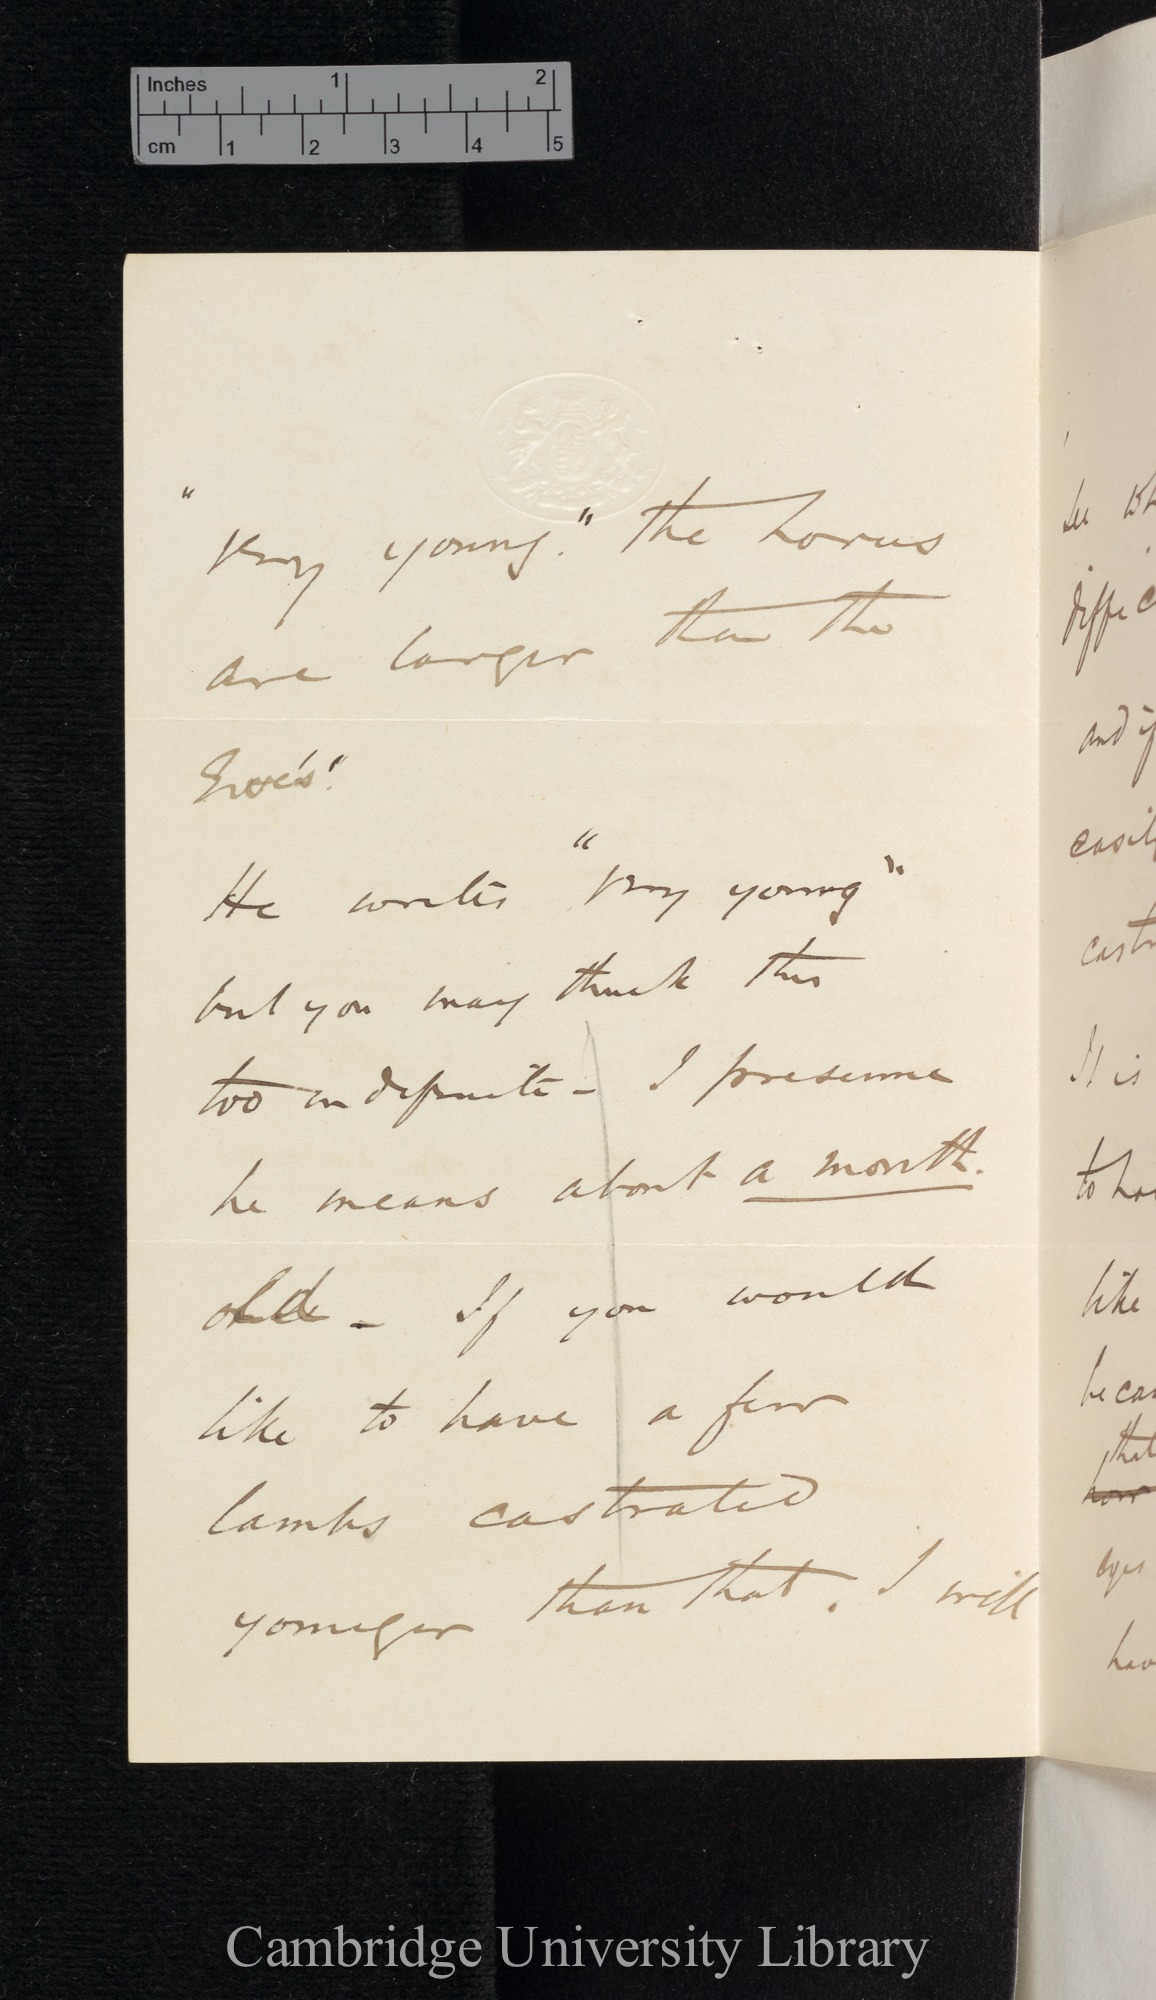 Inches 1 2
cm 1 2 3 4 5
"very young." The horns
are larger than the
Ewe's."
He writes "very young"
but you may think this
too indefinite - I presume
he means about a month.
old - If you would
like to have a few
lambs castrated
younger than that. I will
see
diffic
and if
easily
castr
It is
to ha
like
becau
that
eyes
hav
Cambridge University Library